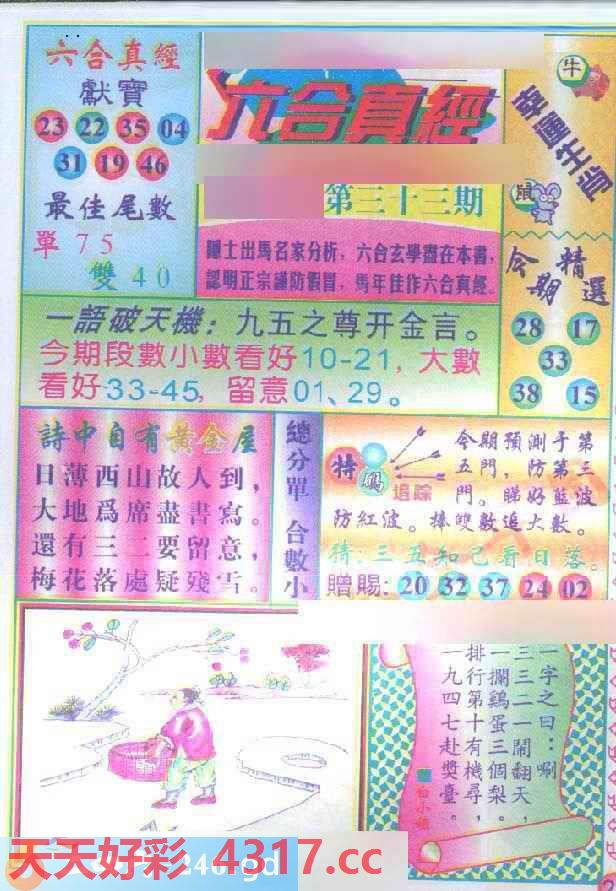 六合真經
獻寶
23 22 35 04
31 19 46
最佳尾數
單 7 5
雙 4 0
六合真經
第三十三期
隱士出馬名家分析，六合玄學盡在本書，
認明正宗謹防假冒，馬年佳作六合真經。
牛
幸運生肖
鼠
今期精選
28 17
33
38 15
一語破天機：九五之尊开金言。
今期段數小數看好10-21，大數
看好33-45，留意01、29。
詩中自有黃金屋
日薄西山故人到，
大地爲席盡書寫。
還有三二要留意，
梅花落處疑殘雪。
總分單 合數小
特碼
追踪
今期預測于第
五門，防第三
門。睇好藍波
防紅波。捧雙數追大數。
猜：三五知己看日落。
贈賜：20 32 37 24 02
一字之曰：唰
三三二一鬧翻天，
一攔鷄蛋三個梨。
排行第十有機尋，
一九四七赴獎臺。
白小姐
天天好彩 4317.cc
246 gd